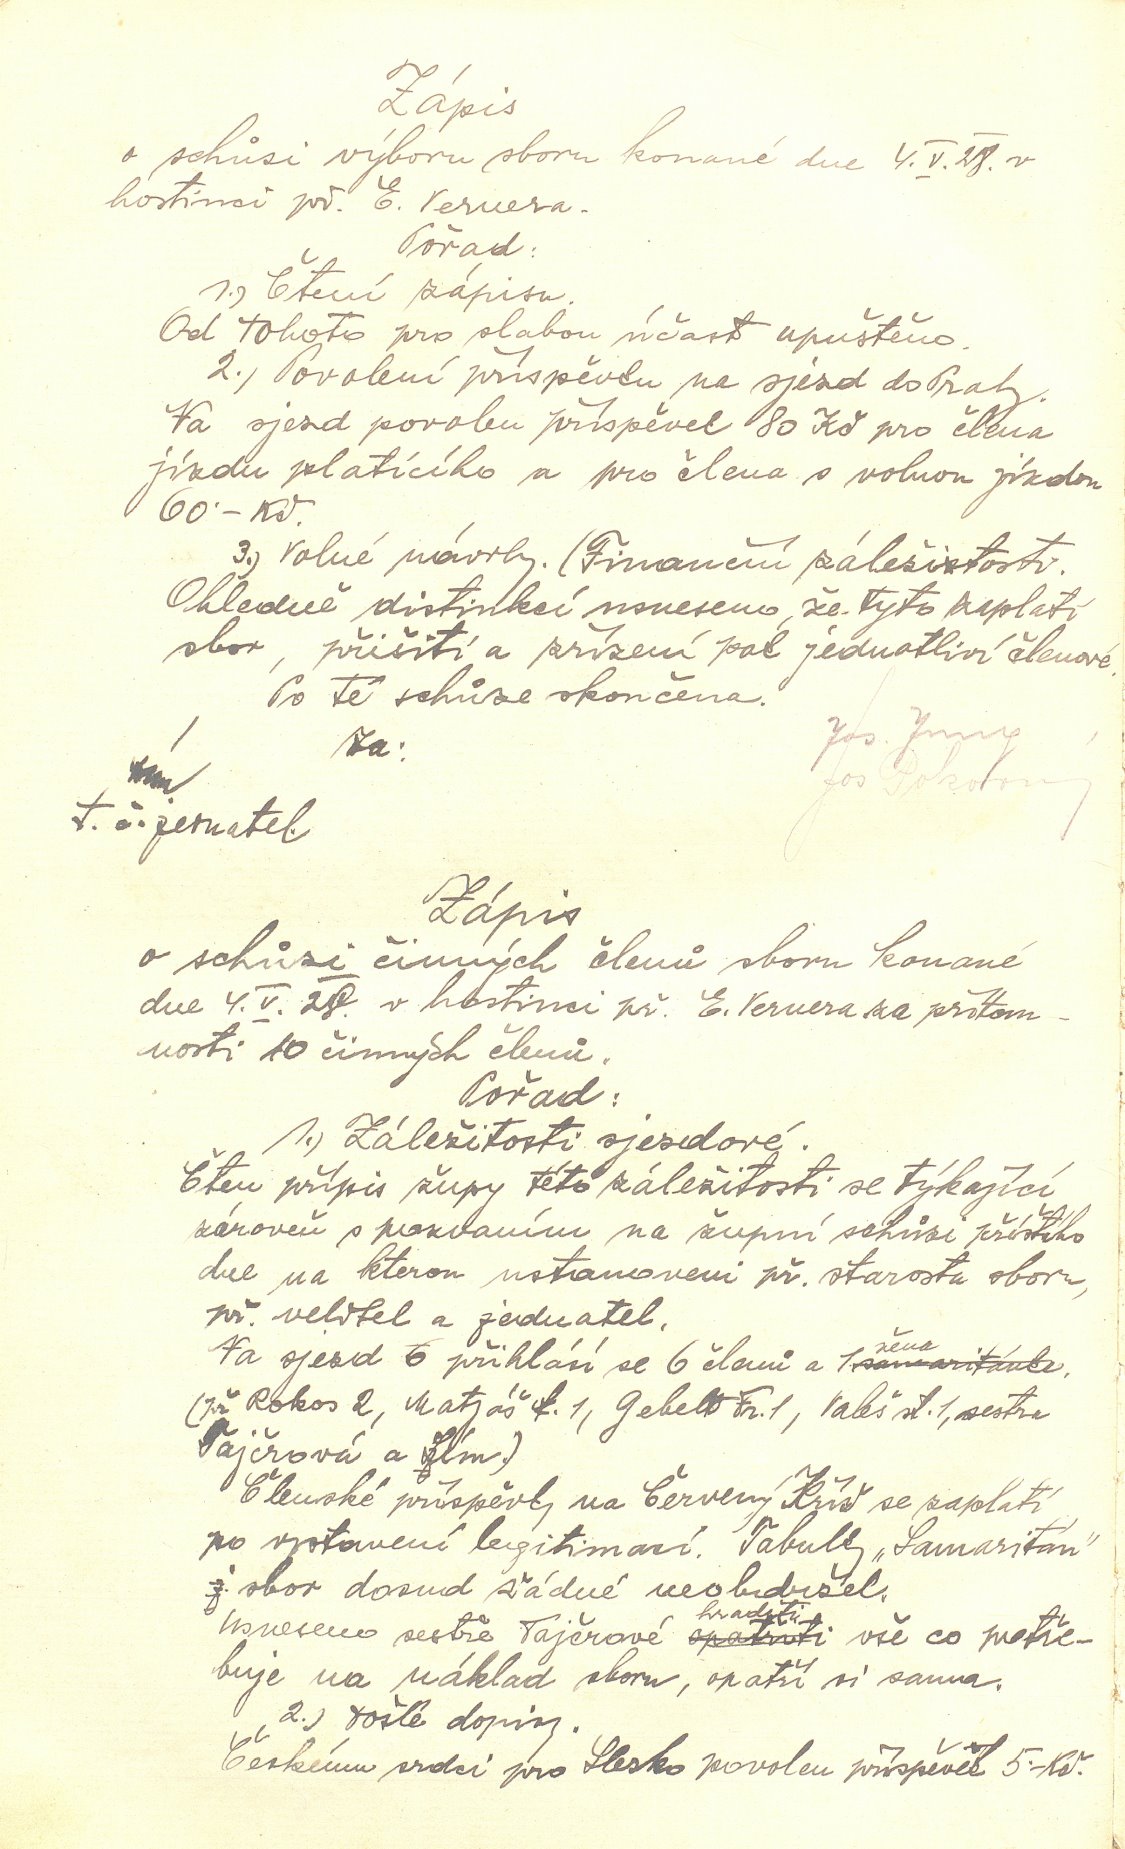 Zápis
o schůzi výboru sboru konané dne 4. V. 28. v
hostinci př. E. Vernera.
Pořad:
1.) Čtení zápisu.
Od tohoto pro slabou účast upuštěno.
2.) Povolení příspěvku na sjezd do Prahy.
Na sjezd povolen příspěvek 80 Kč pro člena
jízdu platícího a pro člena s volnou jízdou
60·– Kč.
3.) Volné návrhy. (Finanční záležitosti.
Ohledně distinkcí usneseno, že tyto zaplatí
sbor, přišití a zřízení pak jednotliví členové.
Po té schůze skončena.
Za:
Jos. Jung
Jos Pokorný
t. č. jednatel.
Zápis
o schůzi činných členů sboru konané
dne 4. V. 28. v hostinci př. E. Vernera za přítom-
nosti 10 činných členů.
Pořad:
1.) Záležitosti sjezdové.
Čten přípis župy této záležitosti se týkající
zároveň s pozváním na župní schůzi příštího
dne na kterou ustanoveni př. starosta sboru,
př. velitel a jednatel.
Na sjezd 6 přihlásí se 6 členů a 1 žena samaritánka.
(př Rokos 2, Matjáš 1, Gebelt Fr. 1, Valeš st. 1, sestra
Tajčrová a Jím.)
Členské příspěvky na Červený Kříž se zaplatí
po vystavení legitimací. Tabulky „Samaritán"
sbor dosud žádné neobdržel.
Usneseno sestře Tajčrové hraditi opatřiti vše co potře-
buje na náklad sboru, opatří si sama.
2.) Došlé dopisy.
Českému srdci pro Slezko povolen příspěvek 5·– Kč.